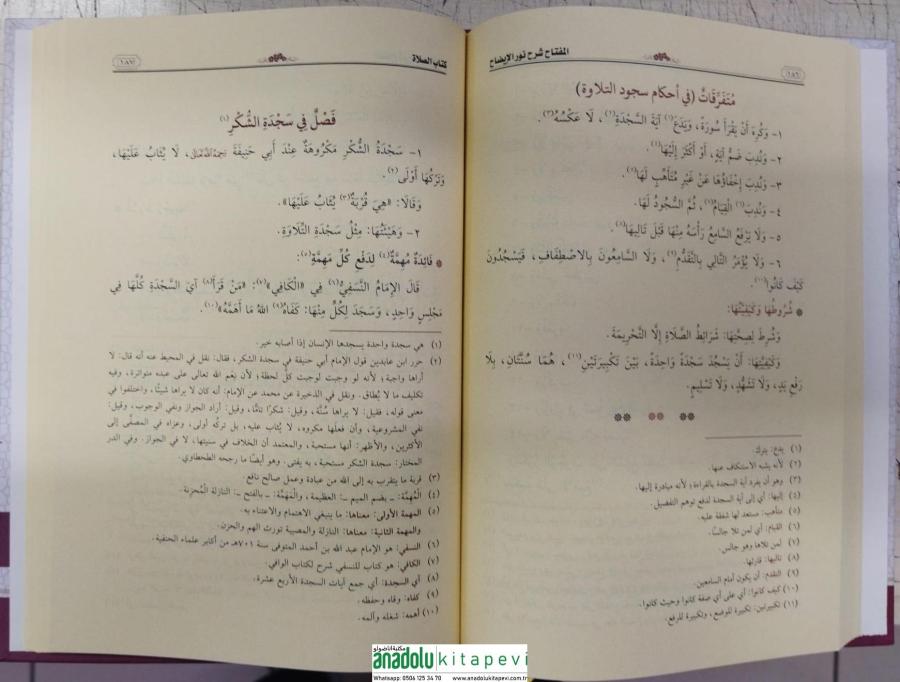 المفتاح شرح نور الإيضاح
١٨٦
مُتَفَرِّقَاتٌ (في أحكام سجود التلاوة)
١- وَكُرِهَ أَنْ يَقْرَأَ سُورَةً، وَيَدَعَ(١) آيَةَ السَّجْدَةِ(٢)، لَا عَكْسُهُ(٣).
٢- وَنُدِبَ ضَمُّ آيَةٍ، أَوْ أَكْثَرَ إِلَيْهَا(٤).
٣- وَنُدِبَ إِخْفَاؤُهَا عَنْ غَيْرِ مُتَأَهِّبٍ لَهَا(٥).
٤- وَنُدِبَ(٦) الْقِيَامُ(٦)، ثُمَّ السُّجُودُ لَهَا.
٥- وَلَا يَرْفَعُ السَّامِعُ رَأْسَهُ مِنْهَا قَبْلَ تَالِيهَا(٨).
٦- وَلَا يُؤْمَرُ التَّالِي بِالتَّقَدُّمِ(٩)، وَلَا السَّامِعُونَ بِالاصْطِفَافِ، فَيَسْجُدُونَ
كَيْفَ كَانُوا(١٠).
❋ شُرُوطُهَا وَكَيْفِيَّتُهَا:
وَشُرِطَ لِصِحَّتِهَا: شَرَائِطُ الصَّلَاةِ إِلَّا التَّحْرِيمَةَ.
وَكَيْفِيَّتُهَا: أَنْ يَسْجُدَ سَجْدَةً وَاحِدَةً، بَيْنَ تَكْبِيرَتَيْنِ(١١)، هُمَا سُنَّتَانِ، بِلَا
رَفْعِ يَدٍ، وَلَا تَشَهُّدٍ، وَلَا تَسْلِيمٍ.
(١) يدع: يترك.
(٢) لأنه يشبه الاستنكاف عنها.
(٣) وهو أن يفرد آية السجدة بالقراءة؛ لأنه مبادرة إليها.
(٤) إليها: أي إلى آية السجدة لدفع توهم التفضيل.
(٥) متأهب: مستعد لها شفقة عليه.
(٦) القيام: أي لمن تلا جالسًا.
(٧) لمن تلاها وهو جالس.
(٨) تاليها: قارئها.
(٩) التقدم: أن يكون أمام السامعين.
(١٠) كيف كانوا: أي على أي صفة كانوا وحيث كانوا.
(١١) تكبيرتين: تكبيرة للوضع، وتكبيرة للرفع.
كتاب الصلاة
١٨٧
فَصْلٌ فِي سَجْدَةِ الشُّكْرِ(١)
١- سَجْدَةُ الشُّكْرِ مَكْرُوهَةٌ عِنْدَ أَبِي حَنِيفَةَ رَحِمَهُ اللهُ تَعَالَى، لَا يُثَابُ عَلَيْهَا،
وَتَرْكُهَا أَوْلَى(٢).
وَقَالَا: «هِيَ قُرْبَةٌ(٣) يُثَابُ عَلَيْهَا».
٢- وَهَيْئَتُهَا: مِثْلُ سَجْدَةِ التِّلَاوَةِ.
❋ فَائِدَةٌ مُهِمَّةٌ(٤) لِدَفْعِ كُلِّ مَهِمَّةٍ(٥):
قَالَ الإِمَامُ النَّسَفِيُّ(٦) فِي «الْكَافِي»(٧): «مَنْ قَرَأَ(٨) آيَ السَّجْدَةِ كُلَّهَا فِي
مَجْلِسٍ وَاحِدٍ، وَسَجَدَ لِكُلٍّ مِنْهَا: كَفَاهُ(٩) اللهُ مَا أَهَمَّهُ»(١٠).
(١) هي سجدة واحدة يسجدها الإنسان إذا أصابه خير.
(٢) حرر ابن عابدين قول الإمام أبي حنيفة في سجدة الشكر، فقال: نقل في المحيط عنه أنه قال: لا
أراها واجبة؛ لأنه لو وجبت لوجبت كل لحظة؛ لأن نِعَم الله تعالى على عبده متواترة، وفيه
تكليف ما لا يُطاق. ونقل في الذخيرة عن محمد عن الإمام: أنه كان لا يراها شيئًا، واختلفوا في
معنى قوله، فقيل: لا يراها سُنَّة، وقيل: شكرًا تامًّا، وقيل: أراد الجواز ونفي الوجوب، وقيل:
نفي المشروعية، وأن فعلها مكروه، لا يُثاب عليه، بل تركه أولى، وعزاه في المصفَّى إلى
الأكثرين، والأظهر: أنها مستحبة، والمعتمد أن الخلاف في سنيتها، لا في الجواز. وفي الدر
المختار: سجدة الشكر مستحبة، به يفتى. وهو أيضًا ما رجحه الطحطاوي.
(٣) قربة ما يتقرب به إلى الله من عبادة وعمل صالح نافع.
(٤) الْمُهِمَّة: ـ بضم الميم ـ: العظيمة، والْمَهَمَّة: ـ بالفتح ـ: النازلة الْمُحزنة.
(٥) المهمة الأولى: معناها: ما ينبغي الاهتمام والاعتناء به.
والمهمة الثانية: معناها: النازلة والمصيبة تورث الهم والحزن.
(٦) النسفي: هو الإمام عبد الله بن أحمد المتوفى سنة ٧٠١هـ من أكابر علماء الحنفية.
(٧) الكافي: هو كتاب للنسفي شرح لكتاب الوافي.
(٨) آي السجدة: أي جمع آيات السجدة الأربع عشرة.
(٩) كفاه: وقاه وحفظه.
(١٠) أهمه: شغله وآلمه.
مكتبة اناضولو
anadolukitapevi
Whatsapp: 0506 125 34 70 www.anadolukitapevi.com.tr